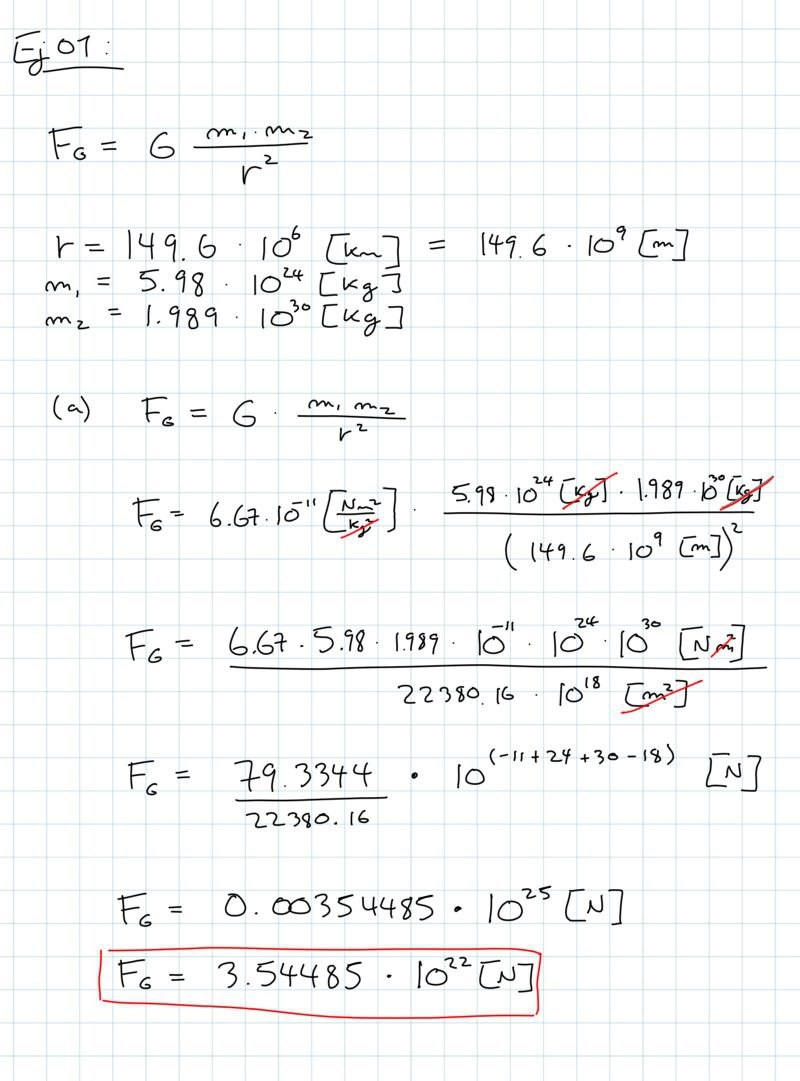 Ej 01:
F_G = G m₁·m₂ / r²
r = 149.6 · 10⁶ [km] = 149.6 · 10⁹ [m]
m₁ = 5.98 · 10²⁴ [kg]
m₂ = 1.989 · 10³⁰ [kg]
(a) F_G = G · m₁ m₂ / r²
F_G = 6.67·10⁻¹¹ [Nm²/kg²] · 5.98·10²⁴ [kg] · 1.989·10³⁰ [kg] / (149.6 · 10⁹ [m])²
F_G = 6.67 · 5.98 · 1.989 · 10⁻¹¹ · 10²⁴ · 10³⁰ [Nm²] / 22380.16 · 10¹⁸ [m²]
F_G = 79.3344 / 22380.16 · 10^(-11+24+30-18) [N]
F_G = 0.00354485 · 10²⁵ [N]
F_G = 3.54485 · 10²² [N]